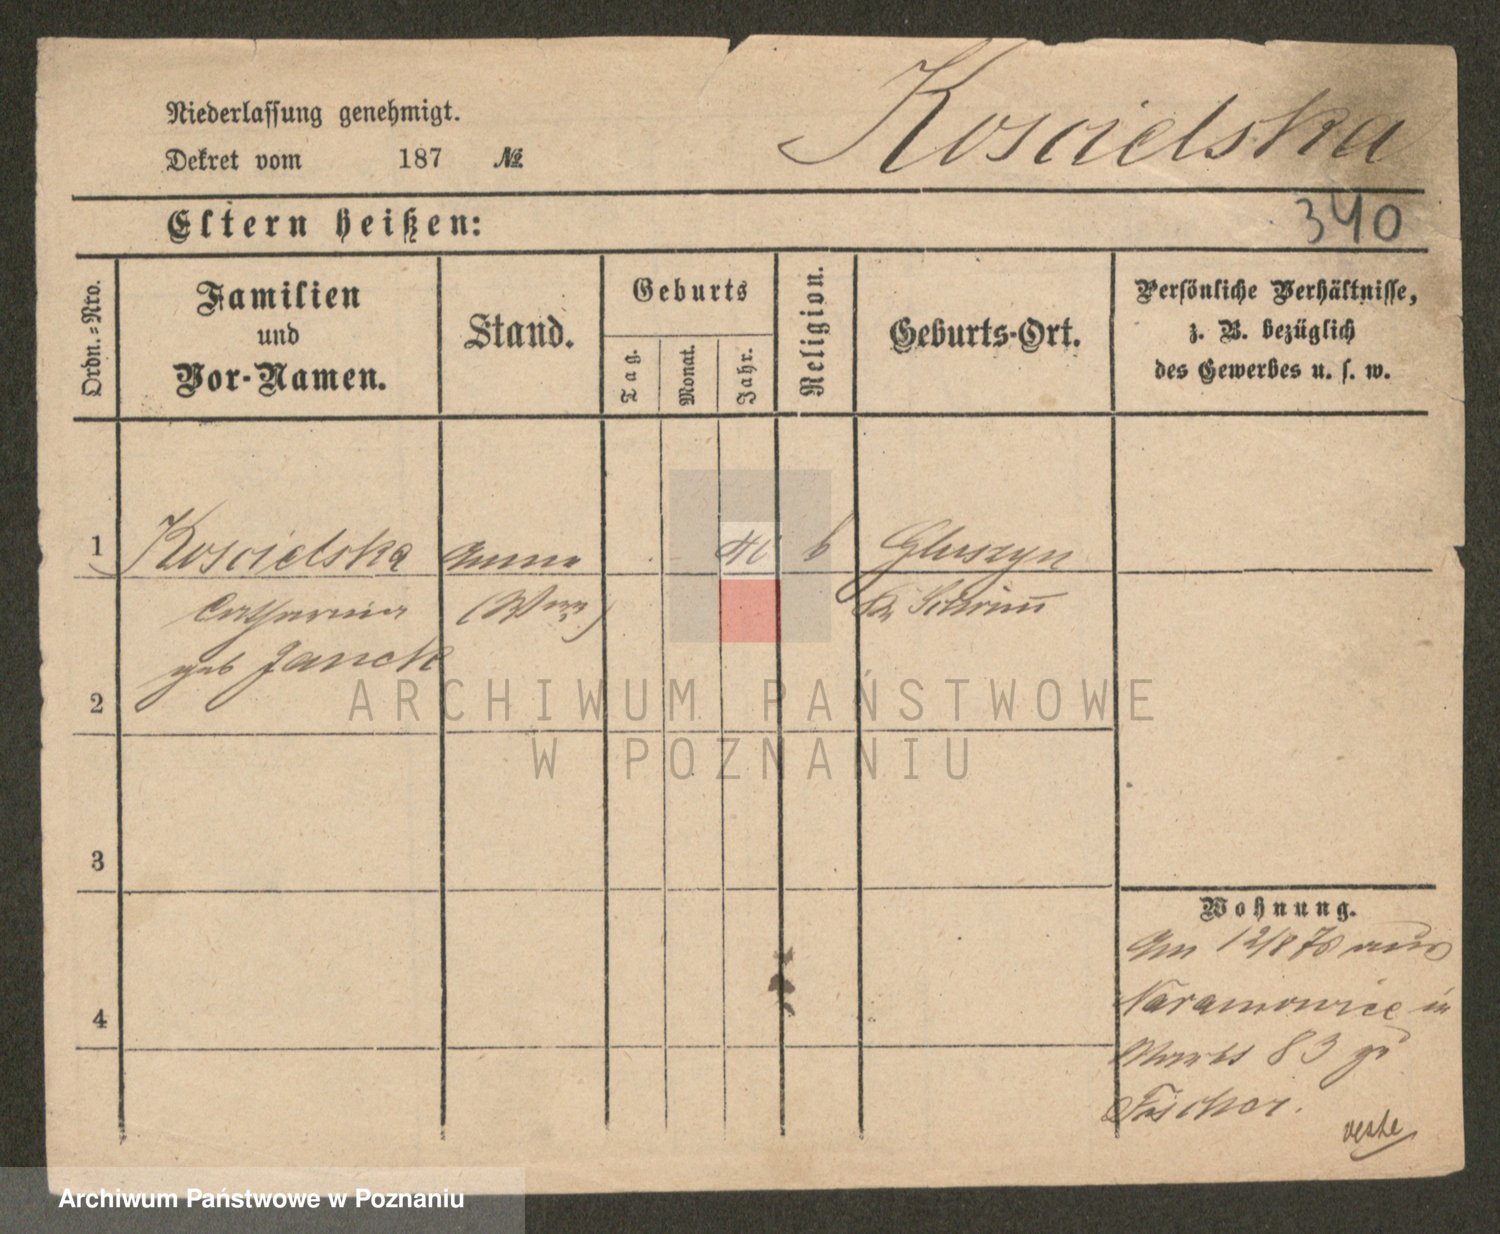 Niederlassung genehmigt.
Dekret vom 187 №
Koscielska
340
Eltern heißen:
Ordn.-Nro.
Familien
und
Vor-Namen.
Stand.
Geburts
Tag.
Monat.
Jahr.
Religion.
Geburts-Ort.
Persönliche Verhältnisse,
z. B. bezüglich
des Gewerbes u. s. w.
1 Koscielska Amme Gluszyn
Catharina Kr Schrimm
geb Janck
2
3
4
Wohnung.
Am 12/8 78 aus
Naramowice in
83
Fischer.
ARCHIWUM PAŃSTWOWE
W POZNANIU
Archiwum Państwowe w Poznaniu